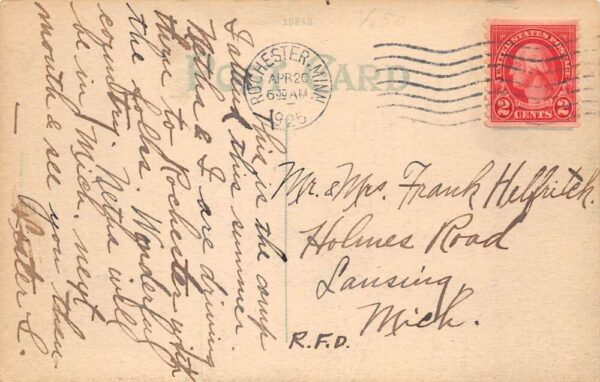 19843
1/2 50
POST CARD
ROCHESTER, MINN.
APR 20
6 30 AM
1925
UNITED STATES POSTAGE
2 CENTS 2
This is the camp
I attend this summer.
Netha & I are driving
thru to Rochester with
the folks. Wonderful
country. Netha will
be in Mich. next
month & see you then.
— L.
Mr. & Mrs. Frank Helfritch.
Holmes Road
Lansing,
Mich.
R.F.D.